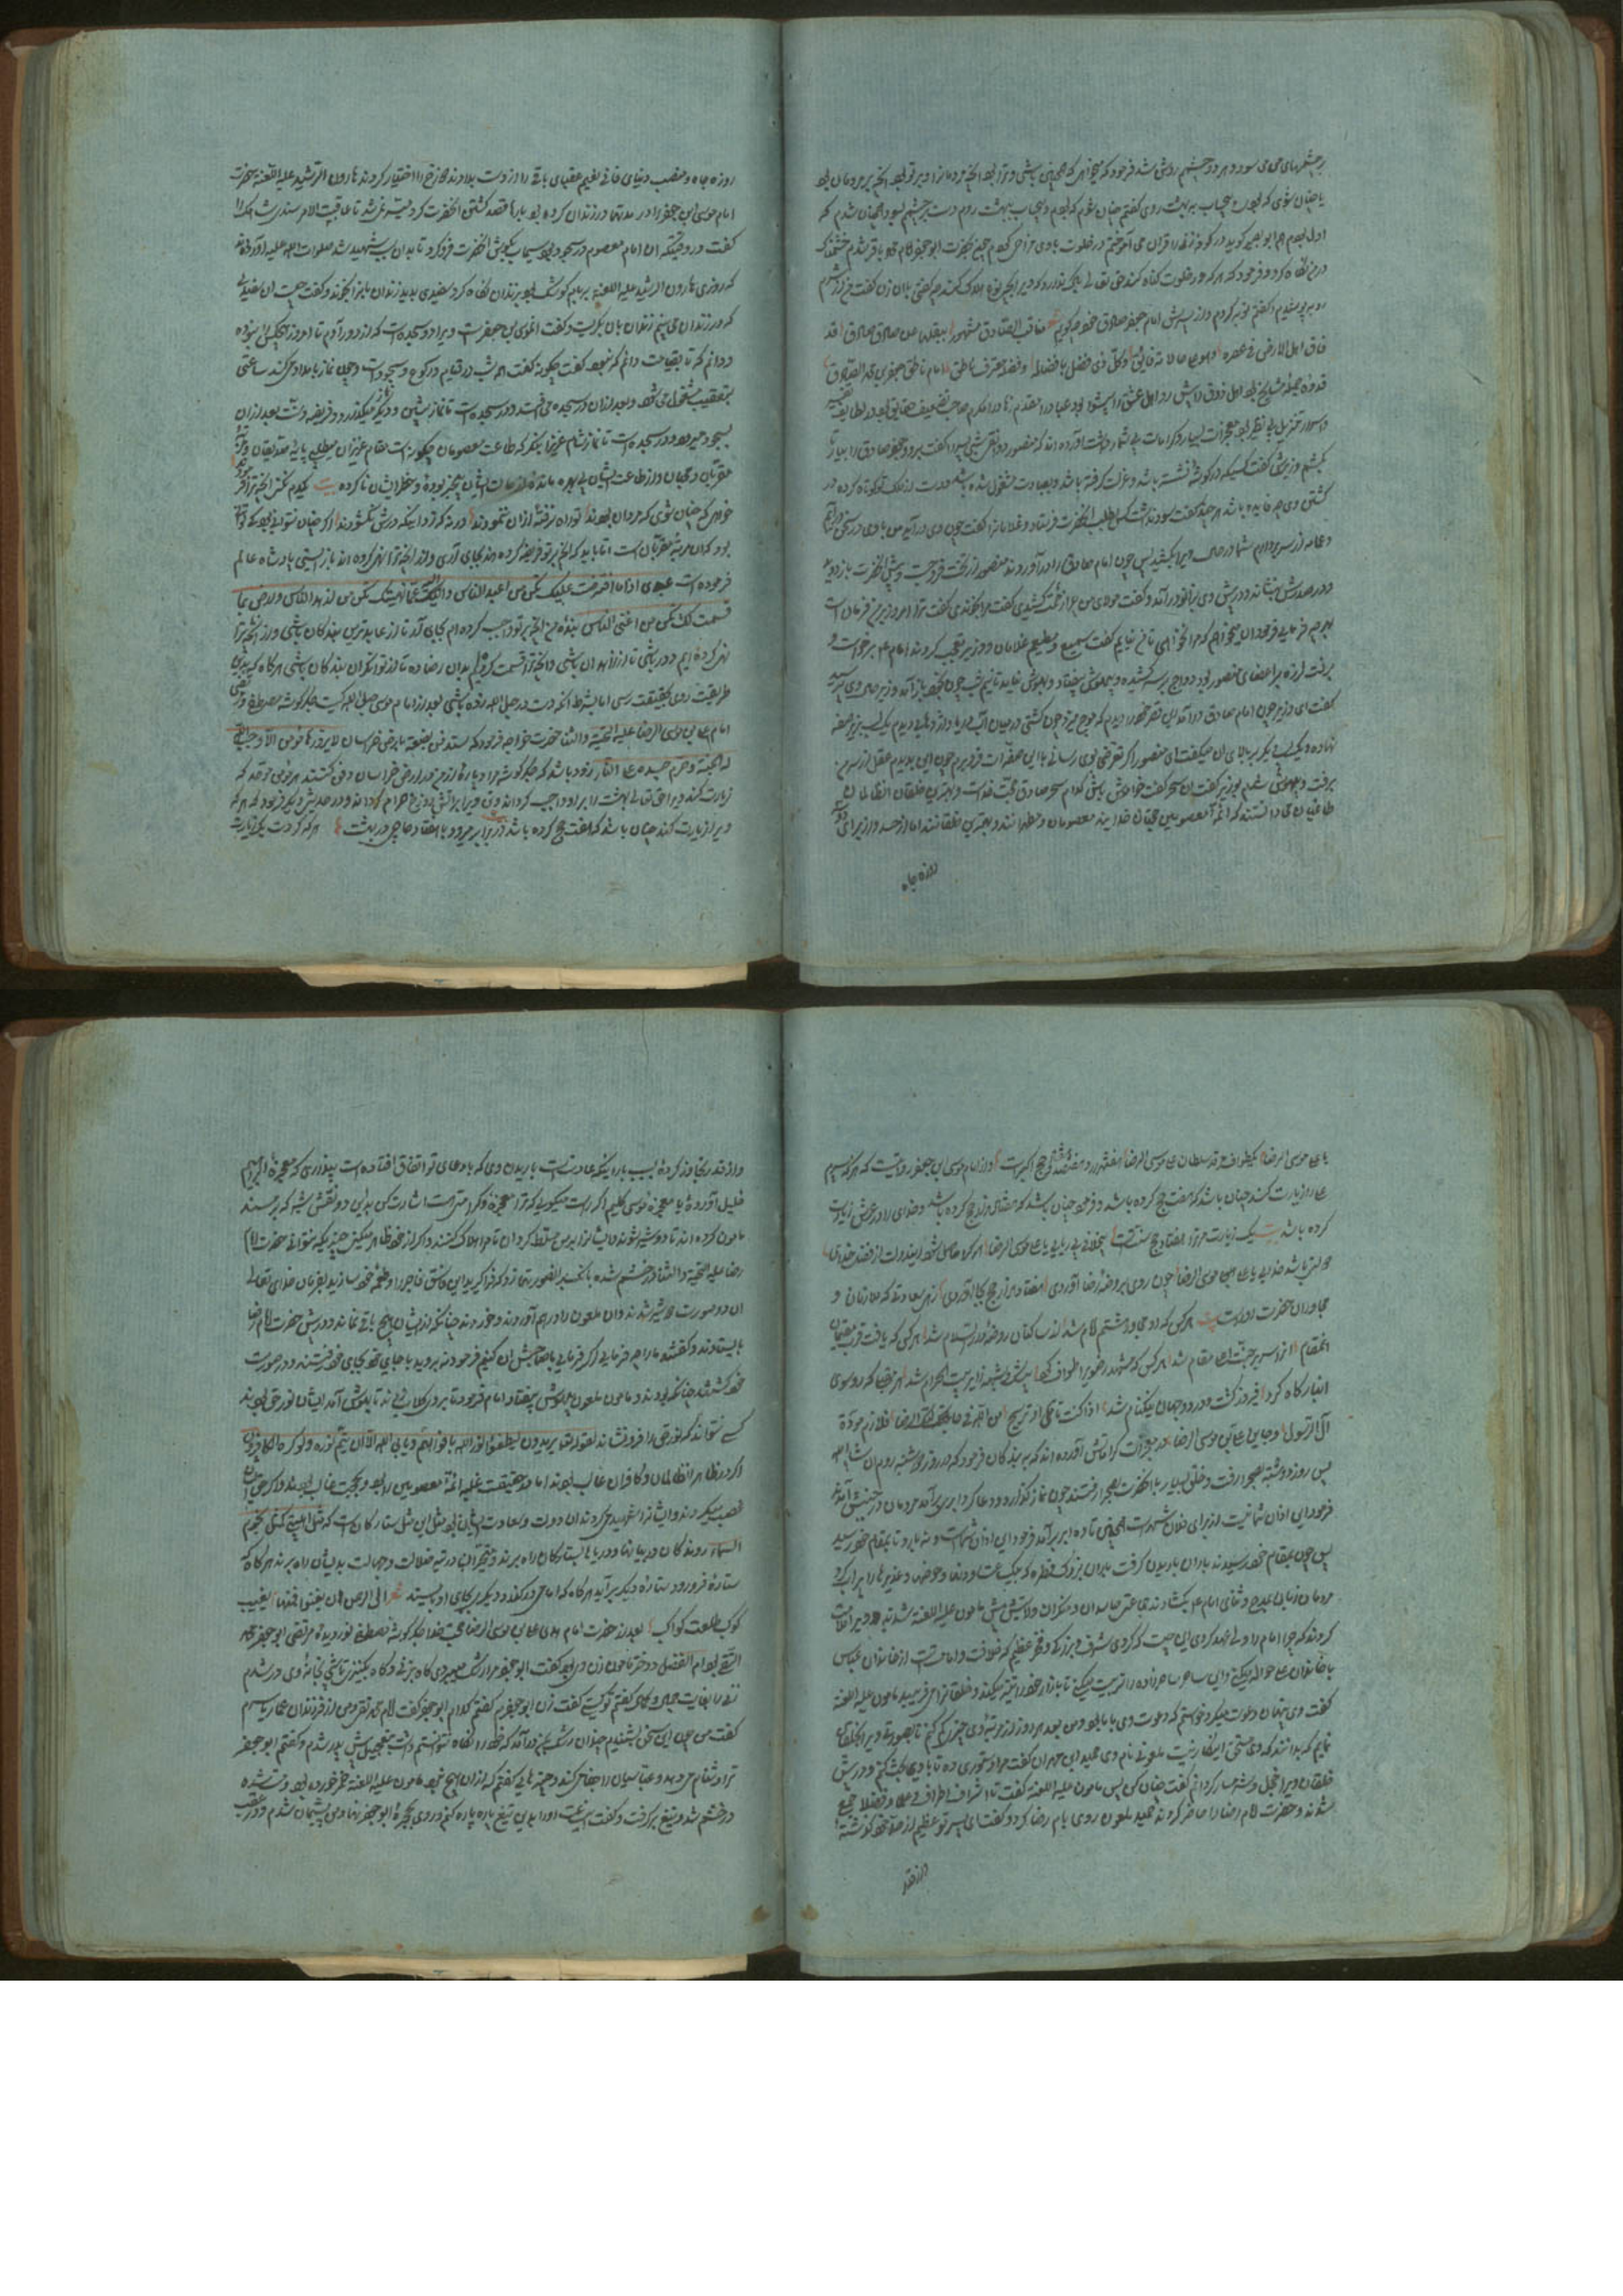 بر چشمهای من سود و هر دو چشم روشن شد فرمود که میخواهی که همچنین باشی و ترا بود آنچه مردمانرا و بر تو بود آنچه بر مردمان بود
یا چنان شوی که بودی و بی حساب به بهشت روی گفتم چنان شوم که بودم و بی حساب ببهشت روم دست بر چشمم سود و همچنان شدم که
اول بودم هم ابو بصیر گوید در کوفه زنی را قرآن می آموختم در خلوت با وی مزاحی کردم چون بحضرت ابو جعفر امام محمد باقر شدم خشمناک
در من نگاه کرد و فرمود که هر که در خلوت گناه کند حق تعالی باک ندارد که ویرا بهر نوع هلاک کند چه گفتی بآن زن گفت من از شرم
روی بپوشیدم و گفتم توبه کردم و از پسرش امام جعفر صادق خود چگویم مناقب الصادق مشهورة ینقلها عن صادق صادق قد
فاق اهل الارض فی عصره وهو علی حالاته فائق
قدوه جمله مشایخ بود اهل ذوق را پیش رو اهل عشق را پیشوا بود عباد را مقدم زهاد را مکرم صاحب تصنیف حقایق بود در لطایف تفسیر
و اسرار تنزیل بی نظیر بود معجزات بسیار و کرامات بی شمار داشت آورده اند که منصور دوانقی شبی پسر را گفت برو و جعفر صادق را بیار تا
بکشم وزیرش گفت کسیکه در گوشه نشسته باشد و عزلت گرفته باشد و بعبادت مشغول شده باشد و دست از ملک تو کوتاه کرده در
کشتن وی چه فایده باشد هر چند گفت سود نداشت کس بطلب آنحضرت فرستاد و غلامانرا گفت چون وی درآید من با وی در سخن درآیم
و عمامه از سر بردارم شما در حال ویرا بکشید پس چون امام صادق را درآوردند منصور از تخت فرو جست و پیش آنحضرت باز دوید
و در صدرش بنشاند و در پیش وی بزانو درآمد و گفت مولای من چرا زحمت کشیدی گفت مرا بخواندی گفت ترا امروز بر من فرمانست
بهر چه فرمایی فرمود آن میخواهم که مرا نخواهی تا من نیایم گفت سمیع و مطیعم غلامان و وزیر تعجب کردند امام ع م برخواست و
برفت لرزه بر اعضای منصور بود دواج بر سر کشیده و بیهوش بیفتاد و بهوش نیامد تا نیم شب چون بخود باز آمد وزیر حال وی پرسید
گفت ای وزیر چون امام صادق درآمد این قصر خود را دیدم که موج میزد چون کشتی در میان آب دریا و اژدهایی دیدم یک لب بزیر صفه
نهاده و یک لب دیگر بر بالای آن میگفت ای منصور اگر تعرضی بوی رسانی با این صفه ات فرو برم چون این بدیدم عقل از سر من
برفت و بیهوش شدم وزیر گفت این سحر گفت خواموش باش کدام سحر صادق حجت خداست و بهترین خلقان آن ظالمان
طاغیان می دانستند که ائمه معصومین حجتان خدایند معصومان و مطهرانند و بهترین خلقانند اما از حسد و از برای دو سه
روزه جاه
روزه جاه و منصب دنیای فانی نعیم عقبای باقی را از دست بدادند و دوزخ را اختیار کردند هارون الرشید علیه اللعنه حضرت
امام موسی ابن جعفر را در مدتها در زندان کرده بود بارها قصد کشتن آنحضرت کرد میسر نمی شد تا عاقبت الامر سندی شاهک را
گفت در وقتیکه آن امام معصوم در سجود بود سیماب بگوش آنحضرت فرو کرد تا بدان سبب شهید شد صلوات الله علیه آورده اند
که روزی هارون الرشید علیه اللعنه بر بام کوشک بود بزندان نگاه کرد سفیدی بدید زندان بانرا بخواند و گفت چیست این سفیدی
که در زندان می بینم زندان بان بگریست و گفت این موسی بن جعفر است و ویرا دو سجده است که از دور آدم تا امروز هیچکس را نبوده
و دانم که تا بقیامت دانم که نبود گفت چگونه گفت همه شب در قیام و رکوع و سجود است و چون نماز بامداد می کند ساعتی
بتعقیب مشغول می شود و بعد از آن در سجده می افتد و در سجده است تا نماز پیشین و دیگر میگذارد و فریضه و سنت بعد از آن
بسجود میرود و در سجده است تا نماز شام عزیز من بنگر که طاعت معصومان چگونه است مقام عزیزان میطلبی پایه صدیقان و مرتبه
مقربان و محبان و از طاعت ایشان بی بهره مانده و از عبادات ایشان بیخبر بوده و خطر ایشان نا کرده بیت کدم مکن آنچه ترا فرموده
خواهی که چنان شوی که مردان بودند تو راه نرفتهٔ از آن ننمودند ورنه که زد این در که درش نگشودند اگر چنان نتوانی بود که
بود که این مرتبه مقربان است اما باید که آنچه بر تو فریضه کرده اند بجای آری و از آنچه ترا نهی کرده اند باز ایستی پادشاه عالم
فرموده است عبدی اد ما افترضت علیک تکن من اعبد الناس وانته عما نهیتک تکن من ازهد الناس وارض بما
قسمت لک تکن من اغنی الناس بنده من آنچه بر تو واجب کرده ام بجای آر تا از عابدترین بندگان باشی و از آنچه ترا
نهی کرده ایم دور باشی تا از زاهدان باشی و آنچه ترا قسمت کرده ام بدان رضا ده تا از توانگران بندگان باشی هر گاه که بدین
طریقت روی بحقیقت رسی اما بشرط آنکه دست در حبل الله زده باشی بعد از امام موسی حبل الله کیست جگر گوشه مصطفی و مرتضی
امام علی بن موسی الرضا علیه التحیة والثنا حضرت خواجه فرمود که ستدفن بضعة منی بارض خراسان لا یزورها مؤمن الا وجب الله
له الجنة وحرم جسده علی النار زود باشد که جگر گوشه مرا و پاره از من در ارض خراسان دفن کنند هر مؤمنی موحد که
زیارت کند ویرا حق تعالی بهشت را بر او واجب کرداند و تن ویرا بر آتش دوزخ حرام گرداند و در حدیثی دیگر فرمود که هر که
ویرا زیارت کند چنان باشد که هفت حج کرده باشد و برابر میرود با هفتاد حاجی در بهشت هر که کردت یک زیارت
یا علی موسی الرضا یک طواف مرقد سلطان علی موسی الرضا هفتهزار و هفتصد و هفتاد حج اکبرست و از امام موسی ابن جعفر روایت است که هر که پسرم
علی را زیارت کند چنان باشد که هفت حج کرده باشد و فرمود چنان باشد که هفتاد هزار حج کرده باشد و خدای را در عرش زیارت
کرده باشد بیت یک زیارت مر ترا هفتاد حج سنت است بیخلافی بی ریایی یا علی موسی الرضا هر کرا حاصل شود این دولت از فضل خدا
مولتی باشد خدایی یا علی موسی الرضا چون روی بر روضهٔ رضا آوردی هفتاد هزار حج بجا آوردی زهی سعادتی که ملازمان و
مجاوران حضرت او راست بیت هر کس که او مجاور هشتم امام شد از ساکنان روضهٔ دار السلام شد هر کس که یافت قرب مقیمان
آن مقام از اوسربر جنت اعلی مقام شد هر کس که مشهد رضوی را طواف کرد بی شبهه زایر بیت الحرام شد هر بنده که رو سوی
این بارگاه کرد فیروز گشت و در دو جهان نیکنام شد اذا کنت تأمل او ترتجی من الله فی حالتیک الرضا فلازم مودة
آل الرسول وجاور علی بن موسی الرضا در معجزات کراماتش آورده اند که به بندگان فرمود که در روز دوشنبه روم ان شاء الله
پس روز دوشنبه بصحرا رفت و خلقی بسیار با آنحضرت بصحرا رفتند چون نماز گذارد و دعا کرد ابری برآمد مردمان در جنبش آمدند
فرمود این از آن شما نیست از برای فلان شهر است همچنین تا ده ابر برآمد فرمود این از آن شماست روید تا بمقام خود رسید
پس چون بمقام خود رسیدند باران باریدن گرفت باران بزرگ قطره که بیک ساعت رودها و حوضها و غدیرها را پر آب کرد
مردمان زبان بمدح و ثنای امام ع م بگشادند جماعتی حاسدان و منکران ولایتش پیش مامون علیه اللعنه شدند و ویرا ملامت
کردند که چرا امام را ولی عهد کردی این چیست که کردی شرف و بزرگی و فخر عظیم که خلافت و امامتست از خاندان عباس
با خاندان علی حواله میکنی و این ساحر ساحر زاده را تربیت میکنی تا بازار خود را تیز میکند و خلق را می فریبد مامون علیه اللعنه
گفت وی پنهان دعوت میکرد خواستم که دعوت وی با ما بود و من بعد هر روز از مرتبهٔ وی چیزی کم کنم تا بصورتی ویرا بخلق
نمایم که بدانند که وی مستحق این کار نیست ملعونی نام وی حمید ابن مهران گفت مرا دستوری ده تا با وی بحث کنم و در پیش
خلقان ویرا خجل و شرمسار گردانم گفت چنان کن پس مامون علیه اللعنه گفت تا اشراف اطراف و علما و فضلا جمع
شدند و حضرت امام رضا را حاضر کردند حمید ملعون روی بامام رضا کرد و گفت ای پسر تو عظیم از حد خود گذشتهٔ
و از قدر
و از قدر تجاوز کردهٔ بسبب بارانیکه عادتست باریدن وی که با دعای تو اتفاق افتاده است پنداری که معجزهٔ ابراهیم
خلیل آوردهٔ یا معجزه موسی کلیم اگر راست میگویی که ترا معجزه و کرامتی است اشارت کن بدین دو نقش شیر که بر مسند
مامون کرده اند تا دو شیر شوند و ایشانرا بر من مسلط گردان تا مرا هلاک کنند و اگر از خود ظاهر میکنی چیزیکه نتوانی حضرت امام
رضا علیه التحیة والثنا در خشم شده بانگ بر آن صورتها زد که فرا گیرید این فاسق فاجر را و طعمهٔ خود سازید بفرمان خدای تعالی
آن دو صورت دو شیر شدند و آن ملعون را در هم آوردند و خوردند چنانکه از ایشان هیچ باقی نماند و در پیش حضرت امام رضا
بایستادند و گفتند ما را چه فرمایی اگر فرمایی با صاحبش آن کنیم فرمود نه بروید با جای خود بجای خود رفتند و دو صورت
خود گشتند چنانکه بودند و مامون ملعون بیهوش بیفتاد امام فرمود تا بر وی گلاب زدند تا بهوش آمد ایشان نور حق بودند
کسی نتواند که نور حق را فرو نشاند لقوله تعالی یریدون لیطفئوا نور الله بافواههم ویابی الله الا ان یتم نوره ولو کره الکافرون
اگر در ظاهر آن ظالمان و کافران غالب بودند اما در حقیقت غلبه ائمهٔ معصومین را بود و بحجت غالب بودند و اگر حق ایشان
غصب میکردند و ایشانرا شهید می کردند آن دولت و سعادت ایشان بود مثل این مثل ستارگان است که مثل اهل بیتی کمثل نجوم
السماء روندگان در بیابانها و دریاها بستارگان راه برند و متحیران در تیه ضلالت و جهالت بدیشان راه برند هر گاه که
ستارهٔ فرو رود ستارهٔ دیگر برآید هر گاه که امامی درگذرد دیگری بجای او بایستد
کوکب طلعت کواکب بعد از حضرت امام هدی علی بن موسی الرضا حجت خدا جگر گوشه مصطفی نور دیدهٔ مرتضی ابو جعفر محمد
التقی بود ام الفضل دختر مامون زن وی بود گفت ابو جعفر مرا رشک میبردی گاه بزنی و گاه بکنیزی تا شبی بخانهٔ وی در شدم
زنی را بغایت جمیله دیدم گفتم تو کیستی گفت زن ابو جعفرم گفتم کدام ابو جعفر گفت امام محمد تقی و من از فرزندان عمار یاسرم
گفت من چون این سخن بشنیدم چندان رشک بمن درآمد که خود را نگاه نتوانستم داشت بتعجیل پیش پدر شدم و گفتم ابو جعفر
ترا دشنام می دهد و عباسیان را جفا می کند و چیزهایی گفتم که از آن هیچ نبود مامون علیه اللعنه خمر خورده بود و مست شده
در خشم شد و تیغ برگرفت و گفت این ساعت او را بدین تیغ پاره پاره کنم و روی بحجرهٔ ابو جعفر نهاد و من پشیمان شدم و در عقب